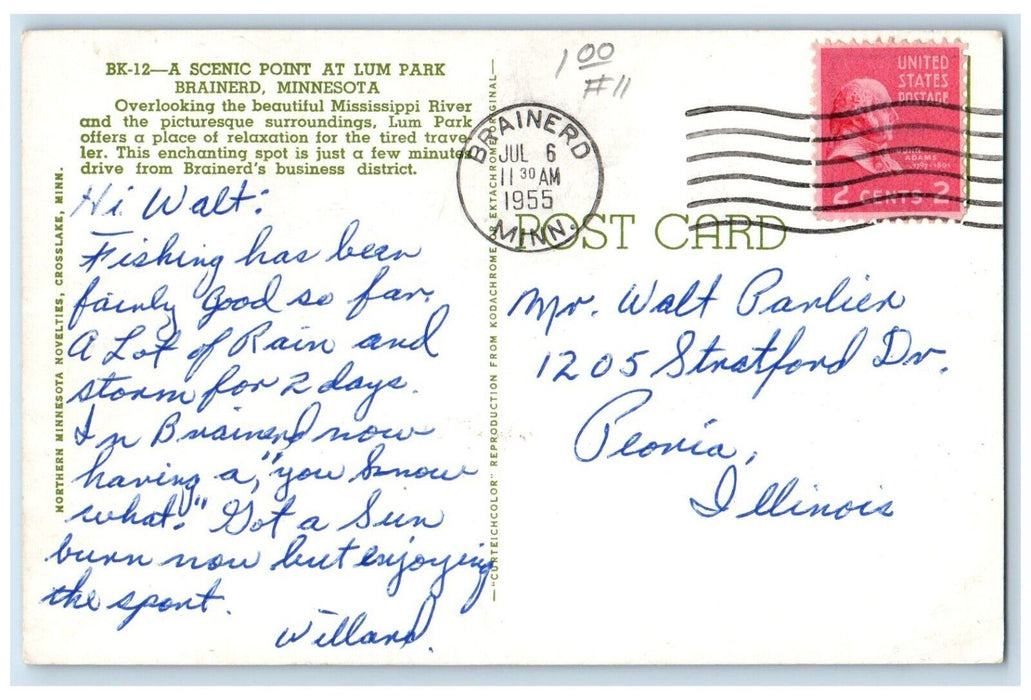 BK-12—A SCENIC POINT AT LUM PARK
BRAINERD, MINNESOTA
Overlooking the beautiful Mississippi River
and the picturesque surroundings, Lum Park
offers a place of relaxation for the tired trave-
ler. This enchanting spot is just a few minutes
drive from Brainerd's business district.
Hi Walt:
Fishing has been
fairly good so far.
A Lot of Rain and
storm for 2 days.
In Brainerd now
having a, "you know
what." Got a Sun
burn now but enjoying
the sport.
Willard.
NORTHERN MINNESOTA NOVELTIES, CROSSLAKE, MINN.
—"CURTEICHCOLOR" REPRODUCTION FROM KODACHROME OR EKTACHROME ORIGINAL—
1 00
#11
BRAINERD
JUL 6
11 30 AM
1955
MINN.
UNITED
STATES
POSTAGE
JOHN
ADAMS
1797-1801
2 CENTS 2
POST CARD
Mr. Walt Parlier
1205 Stratford Dr.
Peoria,
Illinois